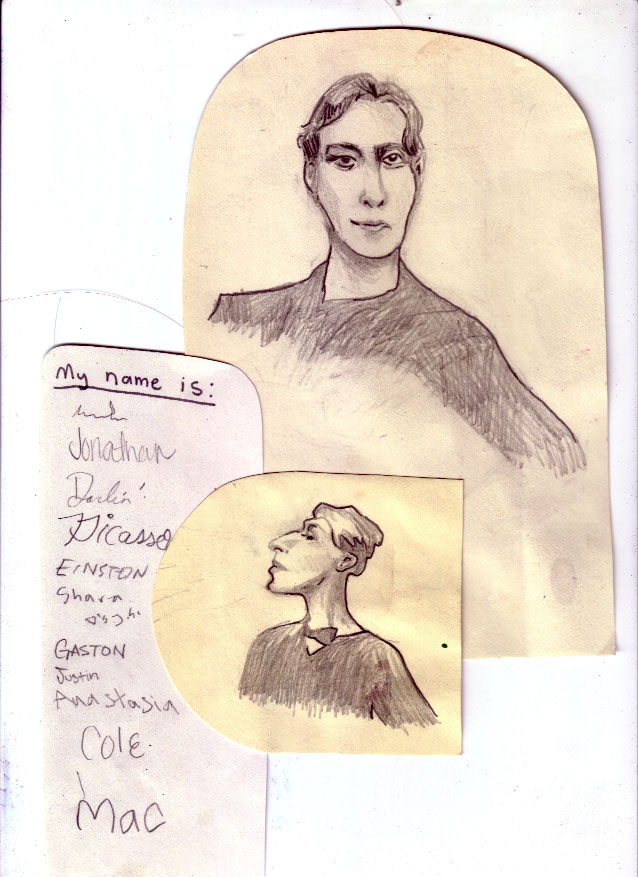 My name is:
Jonathan
Darlin'
Picasso
EINSTON
Shara
GASTON
Justin
Anastasia
Cole
Mac